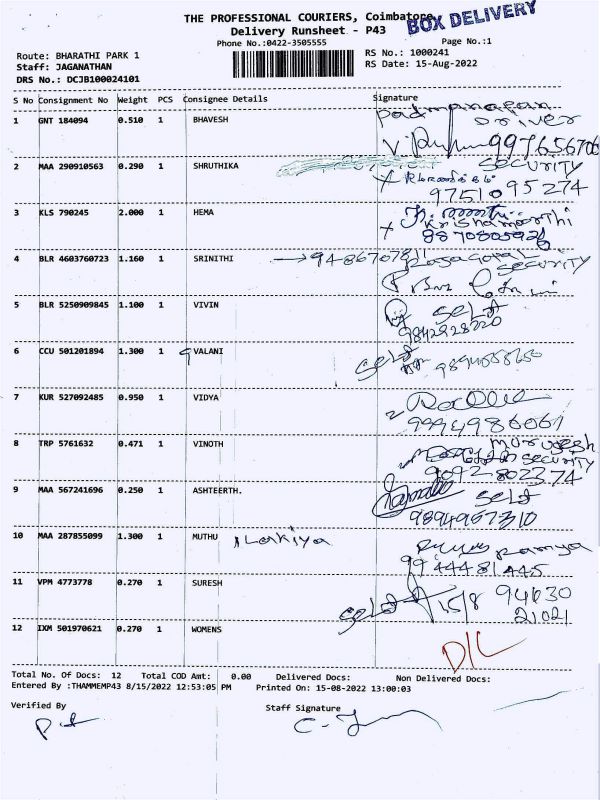 THE PROFESSIONAL COURIERS, Coimbatore
BOX DELIVERY
Delivery Runsheet - P43
Phone No.:0422-3505555
Page No.:1
Route: BHARATHI PARK 1
RS No.: 1000241
Staff: JAGANATHAN
RS Date: 15-Aug-2022
DRS No.: DCJB100024101
S No Consignment No Weight PCS Consignee Details Signature
1 GNT 184094 0.510 1 BHAVESH
Driver
2 MAA 290910563 0.290 1 SHRUTHIKA
SECURITY
9751095274
3 KLS 790245 2.000 1 HEMA
4 BLR 4603760723 1.160 1 SRINITHI
Rajagopal
SECURITY
5 BLR 5250909845 1.100 1 VIVIN
Self
9842928220
6 CCU 501201894 1.300 1 VALANI
Self
7 KUR 527092485 0.950 1 VIDYA
9994986061
8 TRP 5761632 0.471 1 VINOTH
Murugesh
SECURITY
9092802374
9 MAA 567241696 0.250 1 ASHTEERTH.
Self
9894957310
10 MAA 287855099 1.300 1 MUTHU Ilakiya
Ramya
9944481445
11 VPM 4773778 0.270 1 SURESH
Self 15/8 94030
21021
12 IXM 501970621 0.270 1 WOMENS
D/L
Total No. Of Docs: 12 Total COD Amt: 0.00 Delivered Docs: Non Delivered Docs:
Entered By :THAMMEMP43 8/15/2022 12:53:05 PM Printed On: 15-08-2022 13:00:03
Verified By Staff Signature